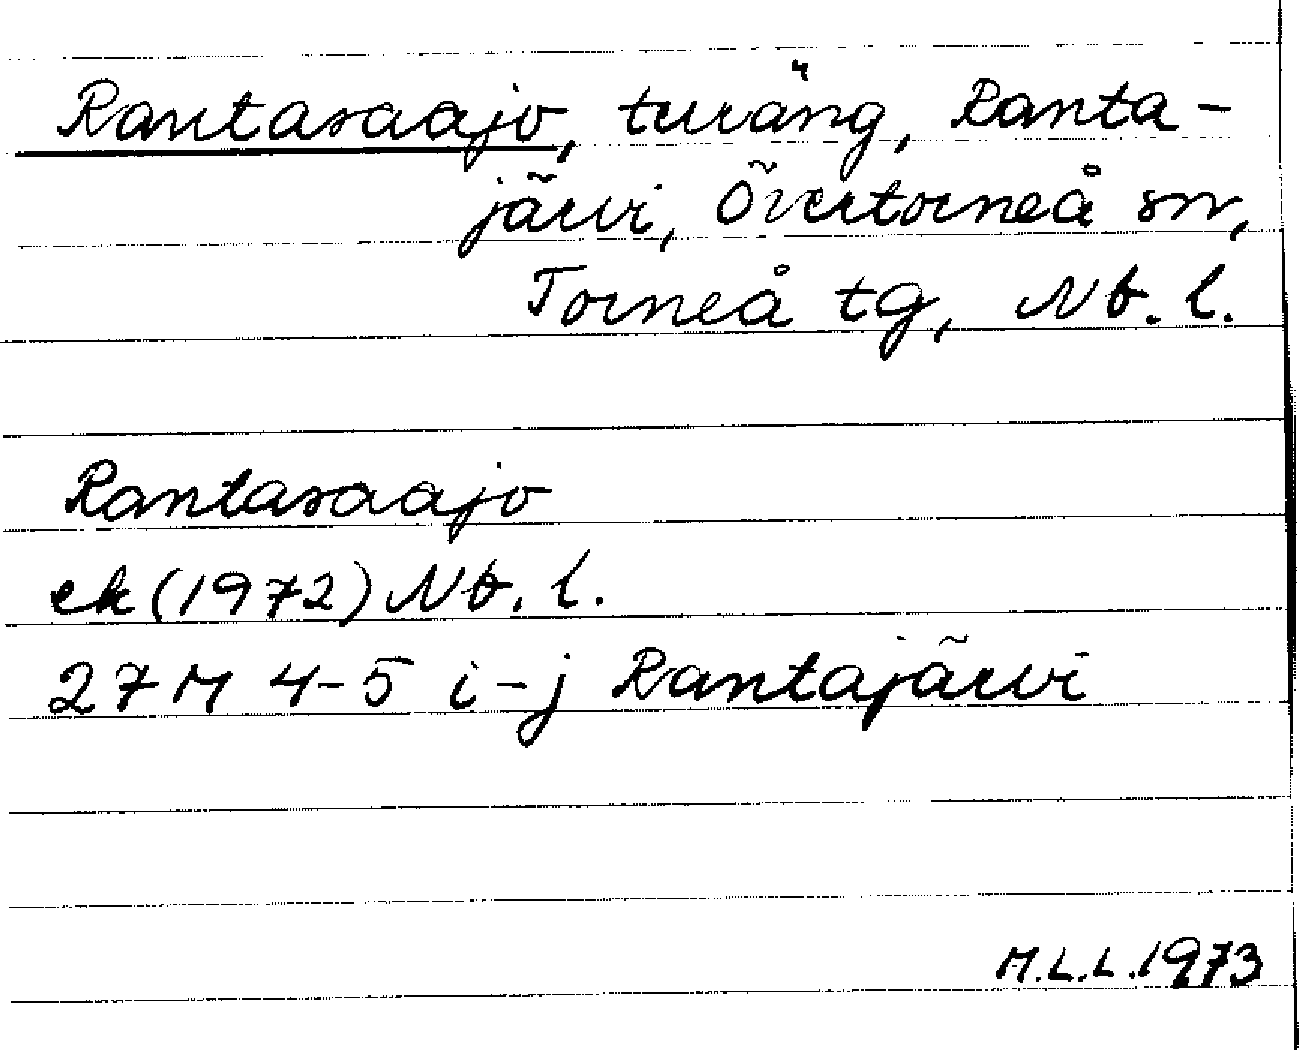 Rantasaajo, turäng, Ranta-
järvi, Övertorneå sn,
Torneå tg, Nb. l.
Rantasaajo
ek (1972) Nb. l.
27 M 4-5 i-j Rantajärvi
M.L.L. 1973